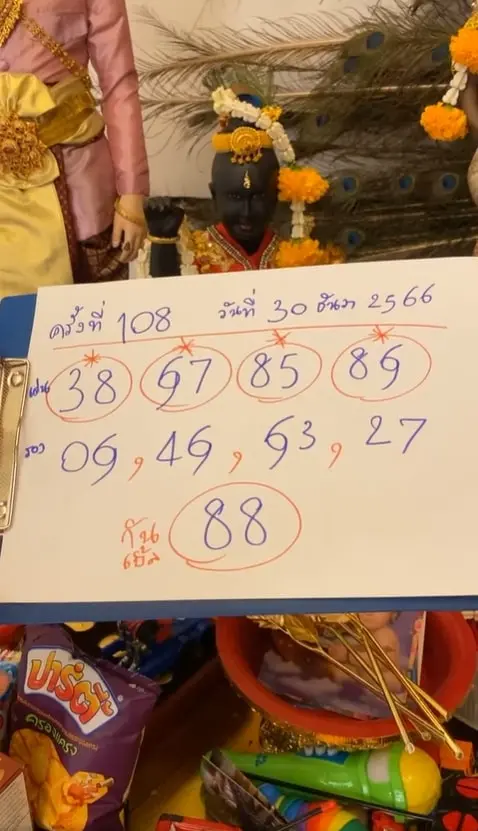 ครั้งที่ 108 วันที่ 30 ธันวา 2566
เด่น 38 97 85 89
รอง 09, 49, 93, 27
กัน
เบิ้ล 88
ปาร์ตี้
ครองแครง